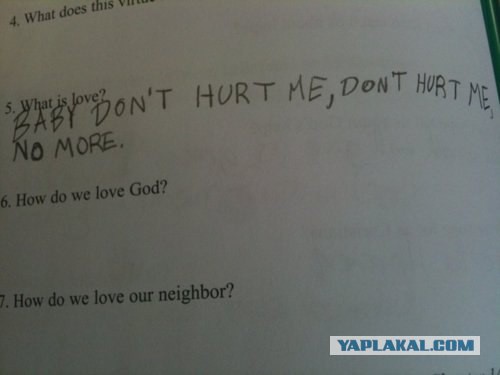 4. What does this
5. What is love?
BABY DON'T HURT ME, DON'T HURT ME,
NO MORE.
6. How do we love God?
7. How do we love our neighbor?
YAPLAKAL.COM